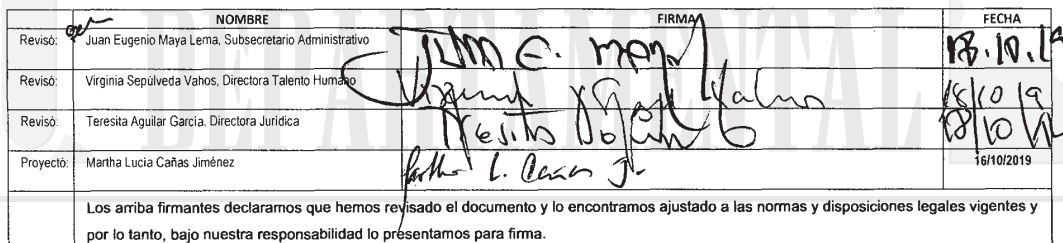 DEPARTAMENTAL
NOMBRE FIRMA FECHA
Revisó: Juan Eugenio Maya Lema, Subsecretario Administrativo Juan E. Maya 18.10.19
Revisó: Virginia Sepúlveda Vahos, Directora Talento Humano Virginia Vahos 18/10/19
Revisó: Teresita Aguilar García, Directora Jurídica Teresita 18/10/19
Proyectó: Martha Lucía Cañas Jiménez Martha L. Cañas J. 16/10/2019
Los arriba firmantes declaramos que hemos revisado el documento y lo encontramos ajustado a las normas y disposiciones legales vigentes y
por lo tanto, bajo nuestra responsabilidad lo presentamos para firma.